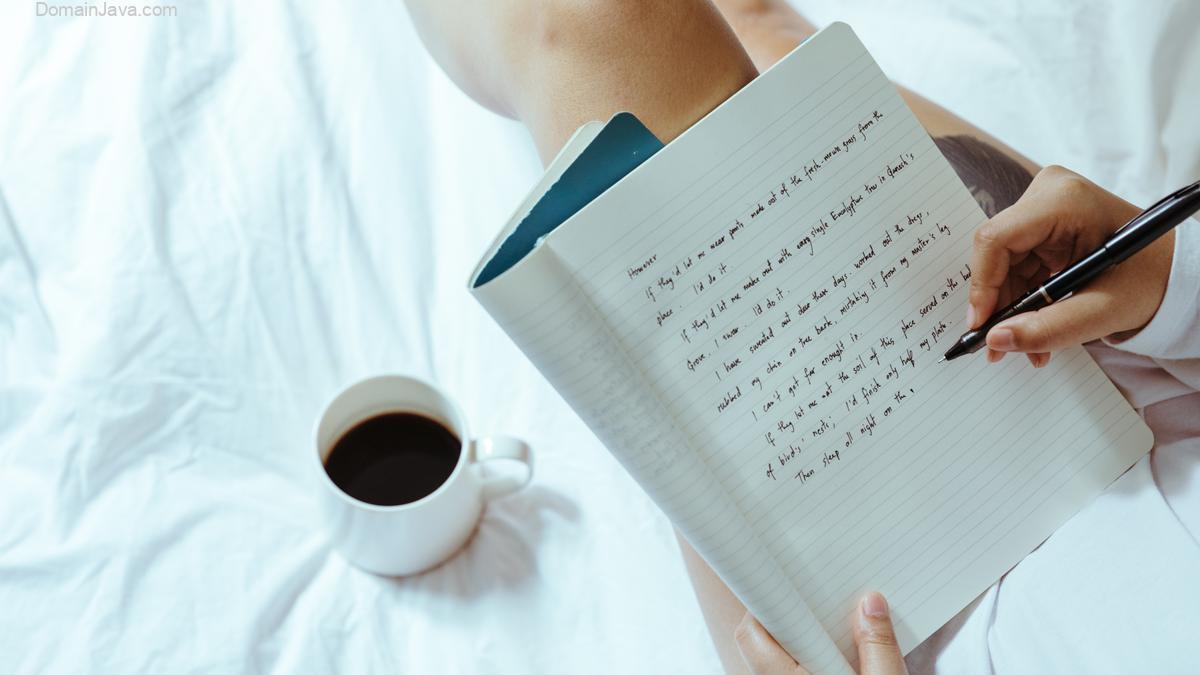 DomainJava.com
However
If they'd let me wear pants made out of the fresh-mown grass from the
place. I'd do it.
If they'd let me make out with every single Eucalyptus tree in
Grove. I swear. I'd do it.
I have sweated out dear these days. worked out the dregs,
my chin on tree bark, mistaking it from my master's leg
I can't get far enough in.
If they let me eat the soil of this place served on the
of birds' nests; I'd finish only half my plate.
Then sleep all night on the